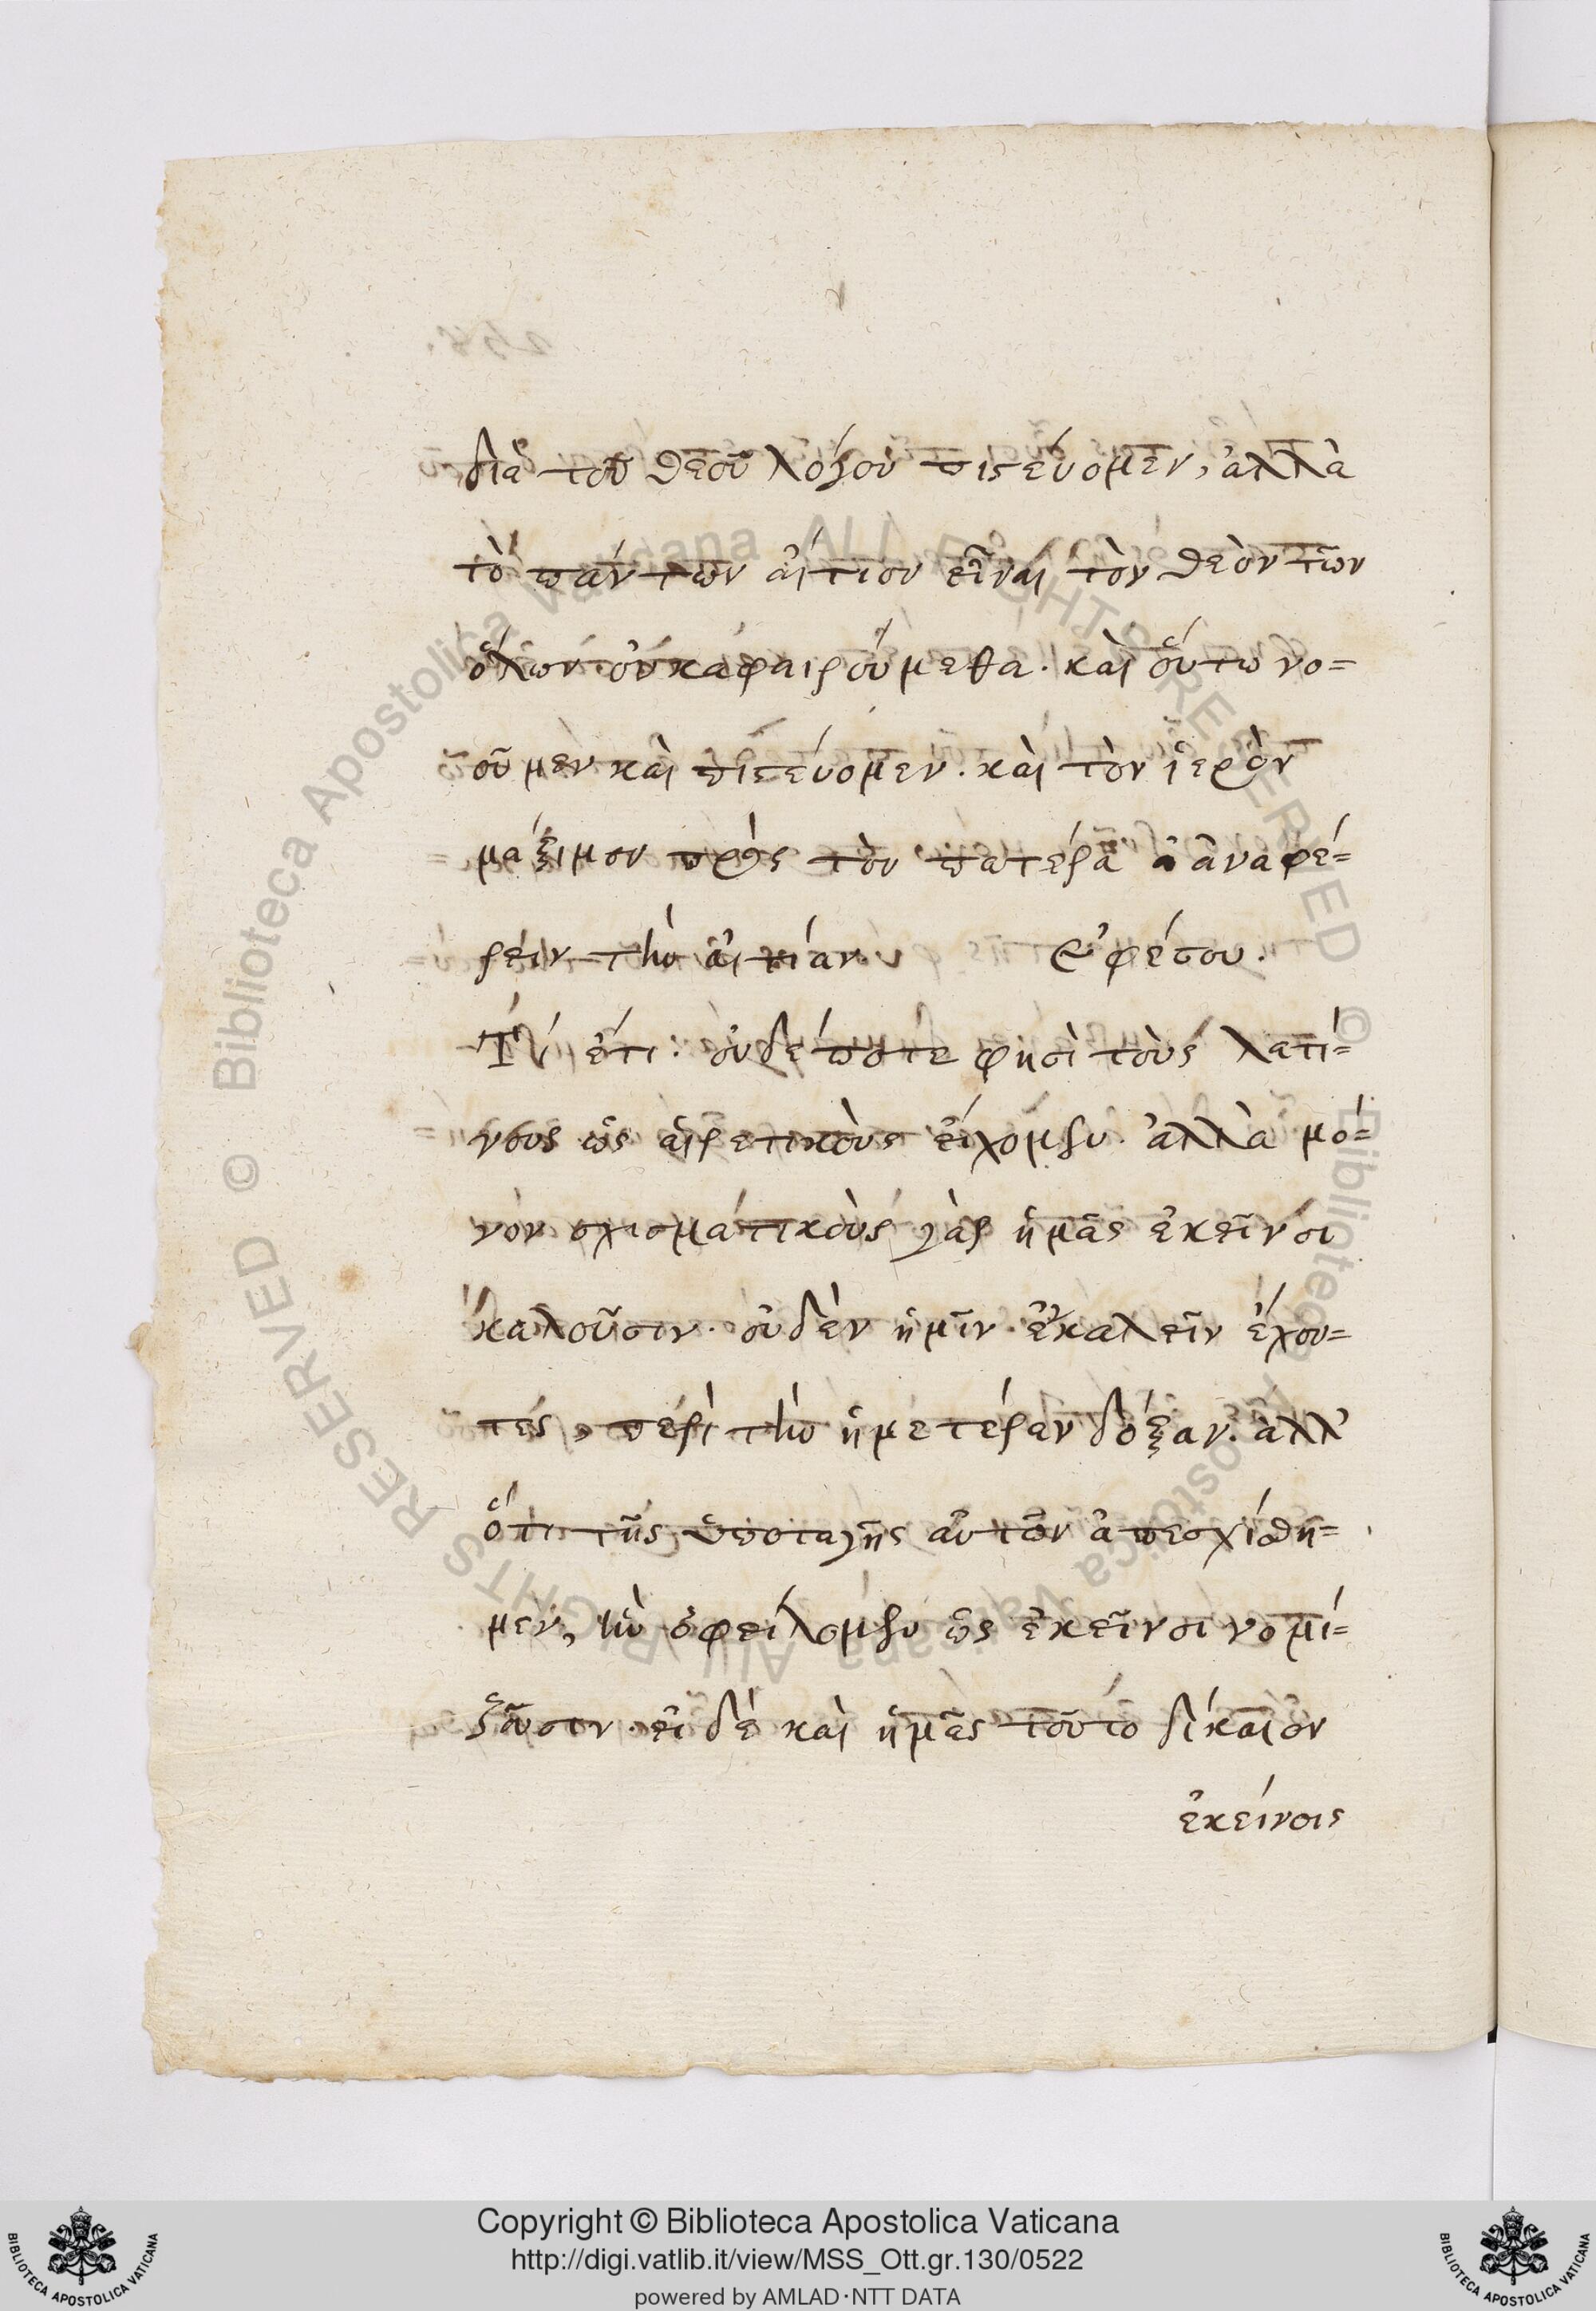 διὰ τοῦ θεοῦ λόγου πιστεύομεν, ἀλλὰ
τὸ πάντων αἴτιον εἶναι τὸν θεὸν τῶν
ὅλων οὐκ ἀφαιρούμεθα. καὶ οὕτω νο=
οῦμεν καὶ πιστεύομεν. καὶ τὸν ἱερὸν
μάξιμον πρὸς τὸν πατέρα ἀναφέ=
ρειν τὴν αἰτίαν. ἐφέτου.
ἔτι οὐδέποτε φησὶ τοὺς λατί=
νους ὡς αἱρετικοὺς εἴχομεν. ἀλλὰ μό=
νον σχισματικοὺς γὰρ ἡμᾶς ἐκεῖνοι
καλοῦσιν. οὐδὲν ἡμῖν ἐγκαλεῖν ἔχον=
τες, περὶ τὴν ἡμετέραν δόξαν. ἀλλ'
ὅτι τῆς ὑποταγῆς αὐτῶν ἀπεσχίσθη=
μεν, ἣν ὀφείλομεν ὡς ἐκεῖνοι νομί=
ζουσιν. εἰ δὲ καὶ ἡμᾶς τοῦτο δίκαιον
ἐκείνοις
Copyright © Biblioteca Apostolica Vaticana
http://digi.vatlib.it/view/MSS_Ott.gr.130/0522
powered by AMLAD·NTT DATA
BIBLIOTECA APOSTOLICA VATICANA
BIBLIOTECA APOSTOLICA VATICANA